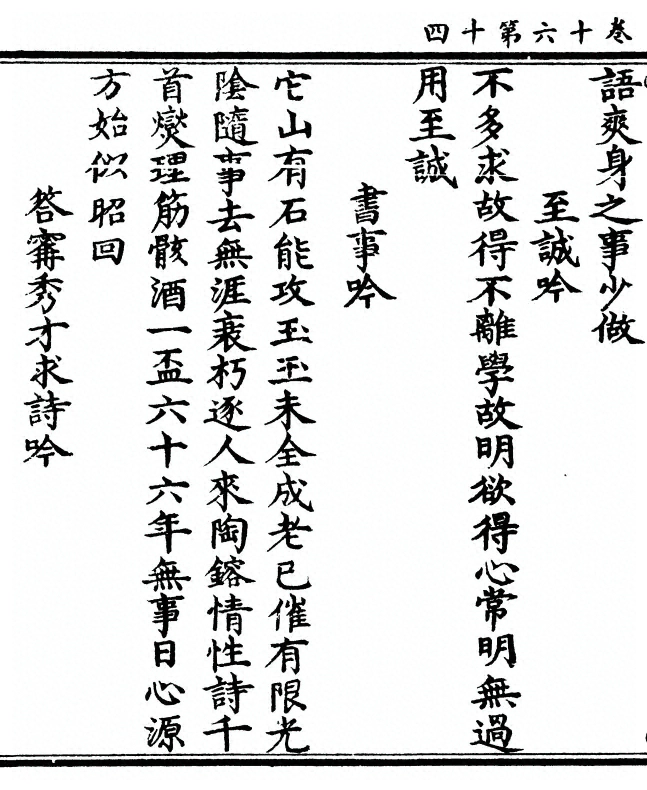 卷十六第十四
語爽身之事少做
至誠吟
不多求故得不離學故明欲得心常明無過
用至誠
書事吟
它山有石能攻玉玉未全成老已催有限光
陰隨事去無涯衰朽逐人來陶鎔情性詩千
首燮理筋骸酒一盃六十六年無事日心源
方始似昭回
答甯秀才求詩吟